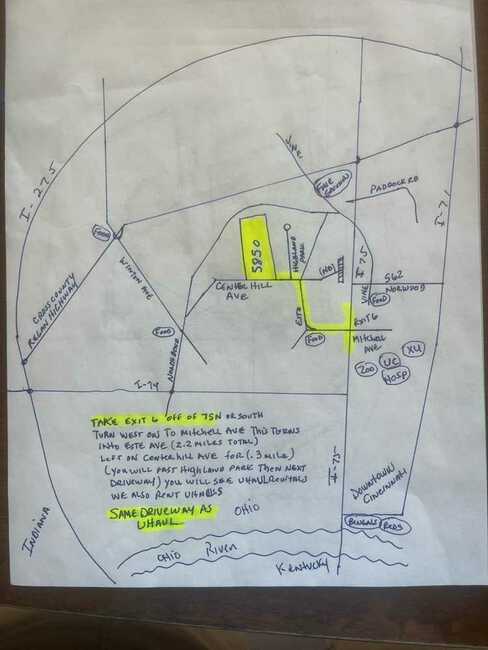 I-275
VINE
FAIR GROUNDS
PADDOCK RD
I-71
FOOD
CROSS COUNTY
REGAN HIGHWAY
WINTON AVE
5850
HIGHLAND
PARK
(NO)
I-75
CENTER HILL
AVE
562
NORWOOD
VINE
FOOD
ESTE
EXIT 6
MITCHELL
AVE
FOOD
FOOD
ZOO
UC
XU
HOSP
I-74
TAKE EXIT 6 OFF OF 75 N OR SOUTH
TURN WEST ON TO MITCHELL AVE THIS TURNS
INTO ESTE AVE (2.2 MILES TOTAL)
LEFT ON CENTER HILL AVE FOR (.3 MILE)
(YOU WILL PAST HIGHLAND PARK THEN NEXT
DRIVEWAY) YOU WILL SEE UHAUL RENTALS
WE ALSO RENT UHAULS
SAME DRIVEWAY AS
UHAUL
I-75
DOWNTOWN
CINCINNATI
BENGALS
REDS
INDIANA
OHIO
OHIO RIVER
KENTUCKY